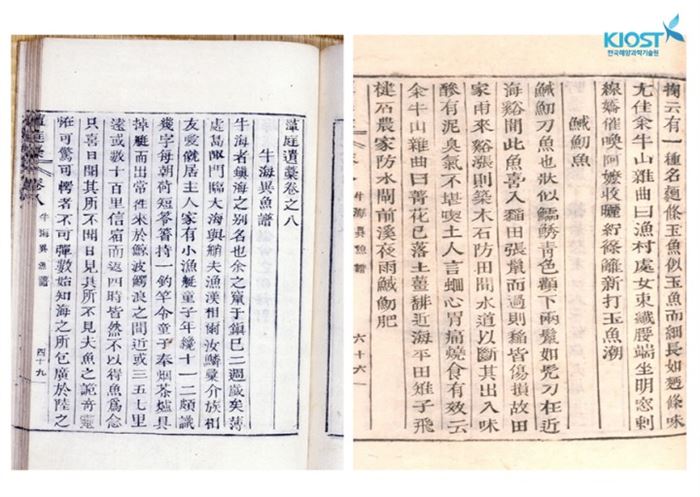 KIOST
한국해양과학기술원
藫庭遺藁卷之八
牛海異魚譜
牛海者鎭海之別名也余之竄于鎭已二週歲矣薄
處島陬門臨大海與艄夫漁漢相爾汝鱗彙介族相
友愛僦居主人家有小漁艇童子年纔十一二頗識
幾字每朝荷短笭箵持一釣竿令童子奉烟茶爐具
掉艇而出常徃來於鯨波鰐浪之間近或三五七里
遠或數十百里信宿而返四時皆然不以得魚爲念
只喜日聞其所不聞日見其所不見夫魚之詭奇靈
怪可驚可愕者不可彈數始知海之所包廣於陸之
卷八 牛海異魚譜 四十九
掬云有一種名麵條玉魚似玉魚而細長如麵條味
尤佳余牛山雜曲曰漁村處女束纖腰端坐明窓刺
線嬌催喚阿嬤收曬篠籬新打玉魚潮
鰄魛魚
鰄魛刀魚也狀似青色顋下兩鬣如刀在近
海谿間此魚喜入稻田張鬣而過則稻皆傷損故田
家雨來谿漲則築木石防田間水道以斷其出入味
醦有泥臭氣不堪喫土人言蛔心胃痛燒食有效云
余牛山雜曲曰菁花已落土薑馡近海平田雉子飛
楗石農家防水閘前溪夜雨鰄魛肥
牛海異魚譜 六十六